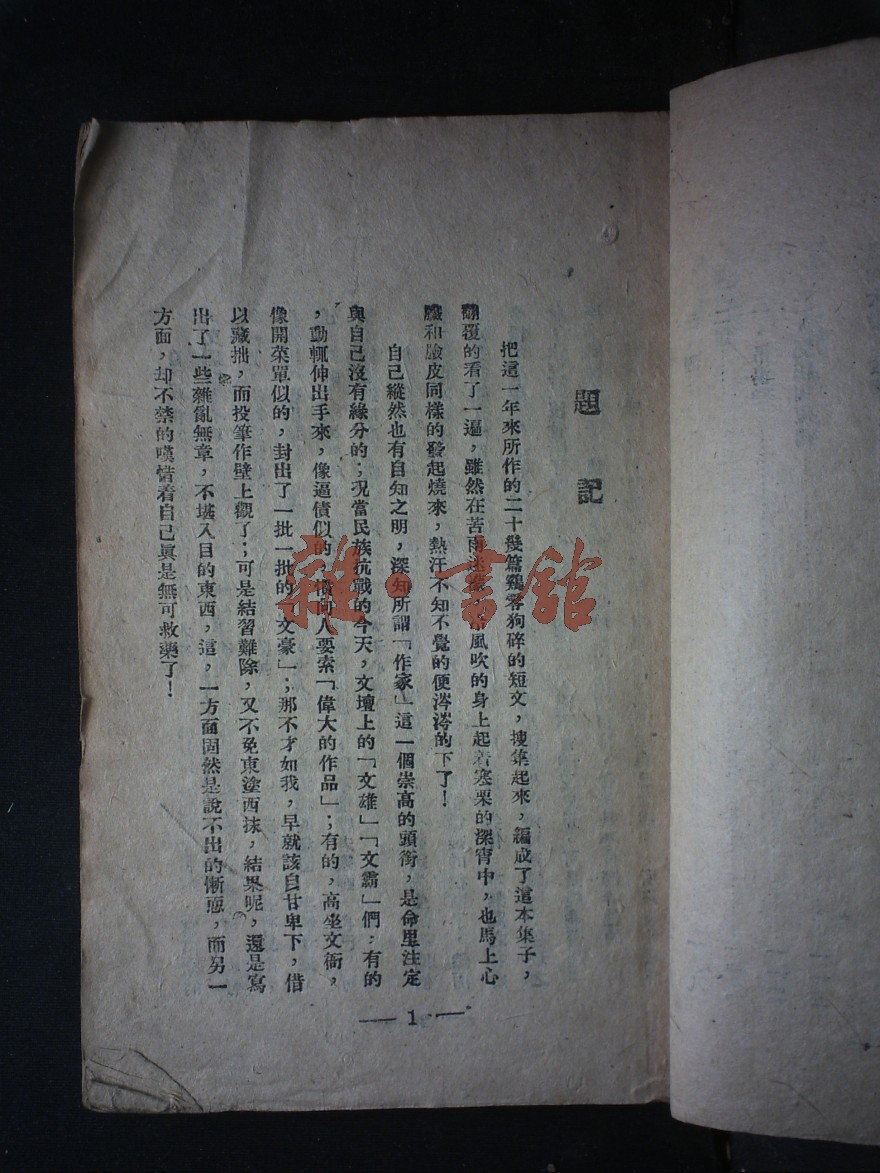 題記
把這一年來所作的二十幾篇鷄零狗碎的短文，搜集起來，編成了這本集子，
翻覆的看了一遍，雖然在苦雨迷風吹的身上起着寒栗的深宵中，也馬上心
臟和臉皮同樣的發起燒來，熱汗不知不覺的便涔涔的下了！
自己縱然也有自知之明，深知所謂「作家」這一個崇高的頭銜，是命里注定
與自己沒有緣分的；況當民族抗戰的今天，文壇上的「文雄」「文霸」們；有的
，動輒伸出手來，像逼債似的，橫向人要索「偉大的作品」；有的，高坐文衙，
像開菜單似的，封出了一批一批的「文豪」；那不才如我，早就該自甘卑下，借
以藏拙，而投筆作壁上觀了；可是結習難除，又不免東塗西抹，結果呢，還是寫
出了一些雜亂無章，不堪入目的東西，這，一方面固然是說不出的慚恧，而另一
方面，却不禁的嘆惜着自己眞是無可救藥了！
— 1 —
雜·書館